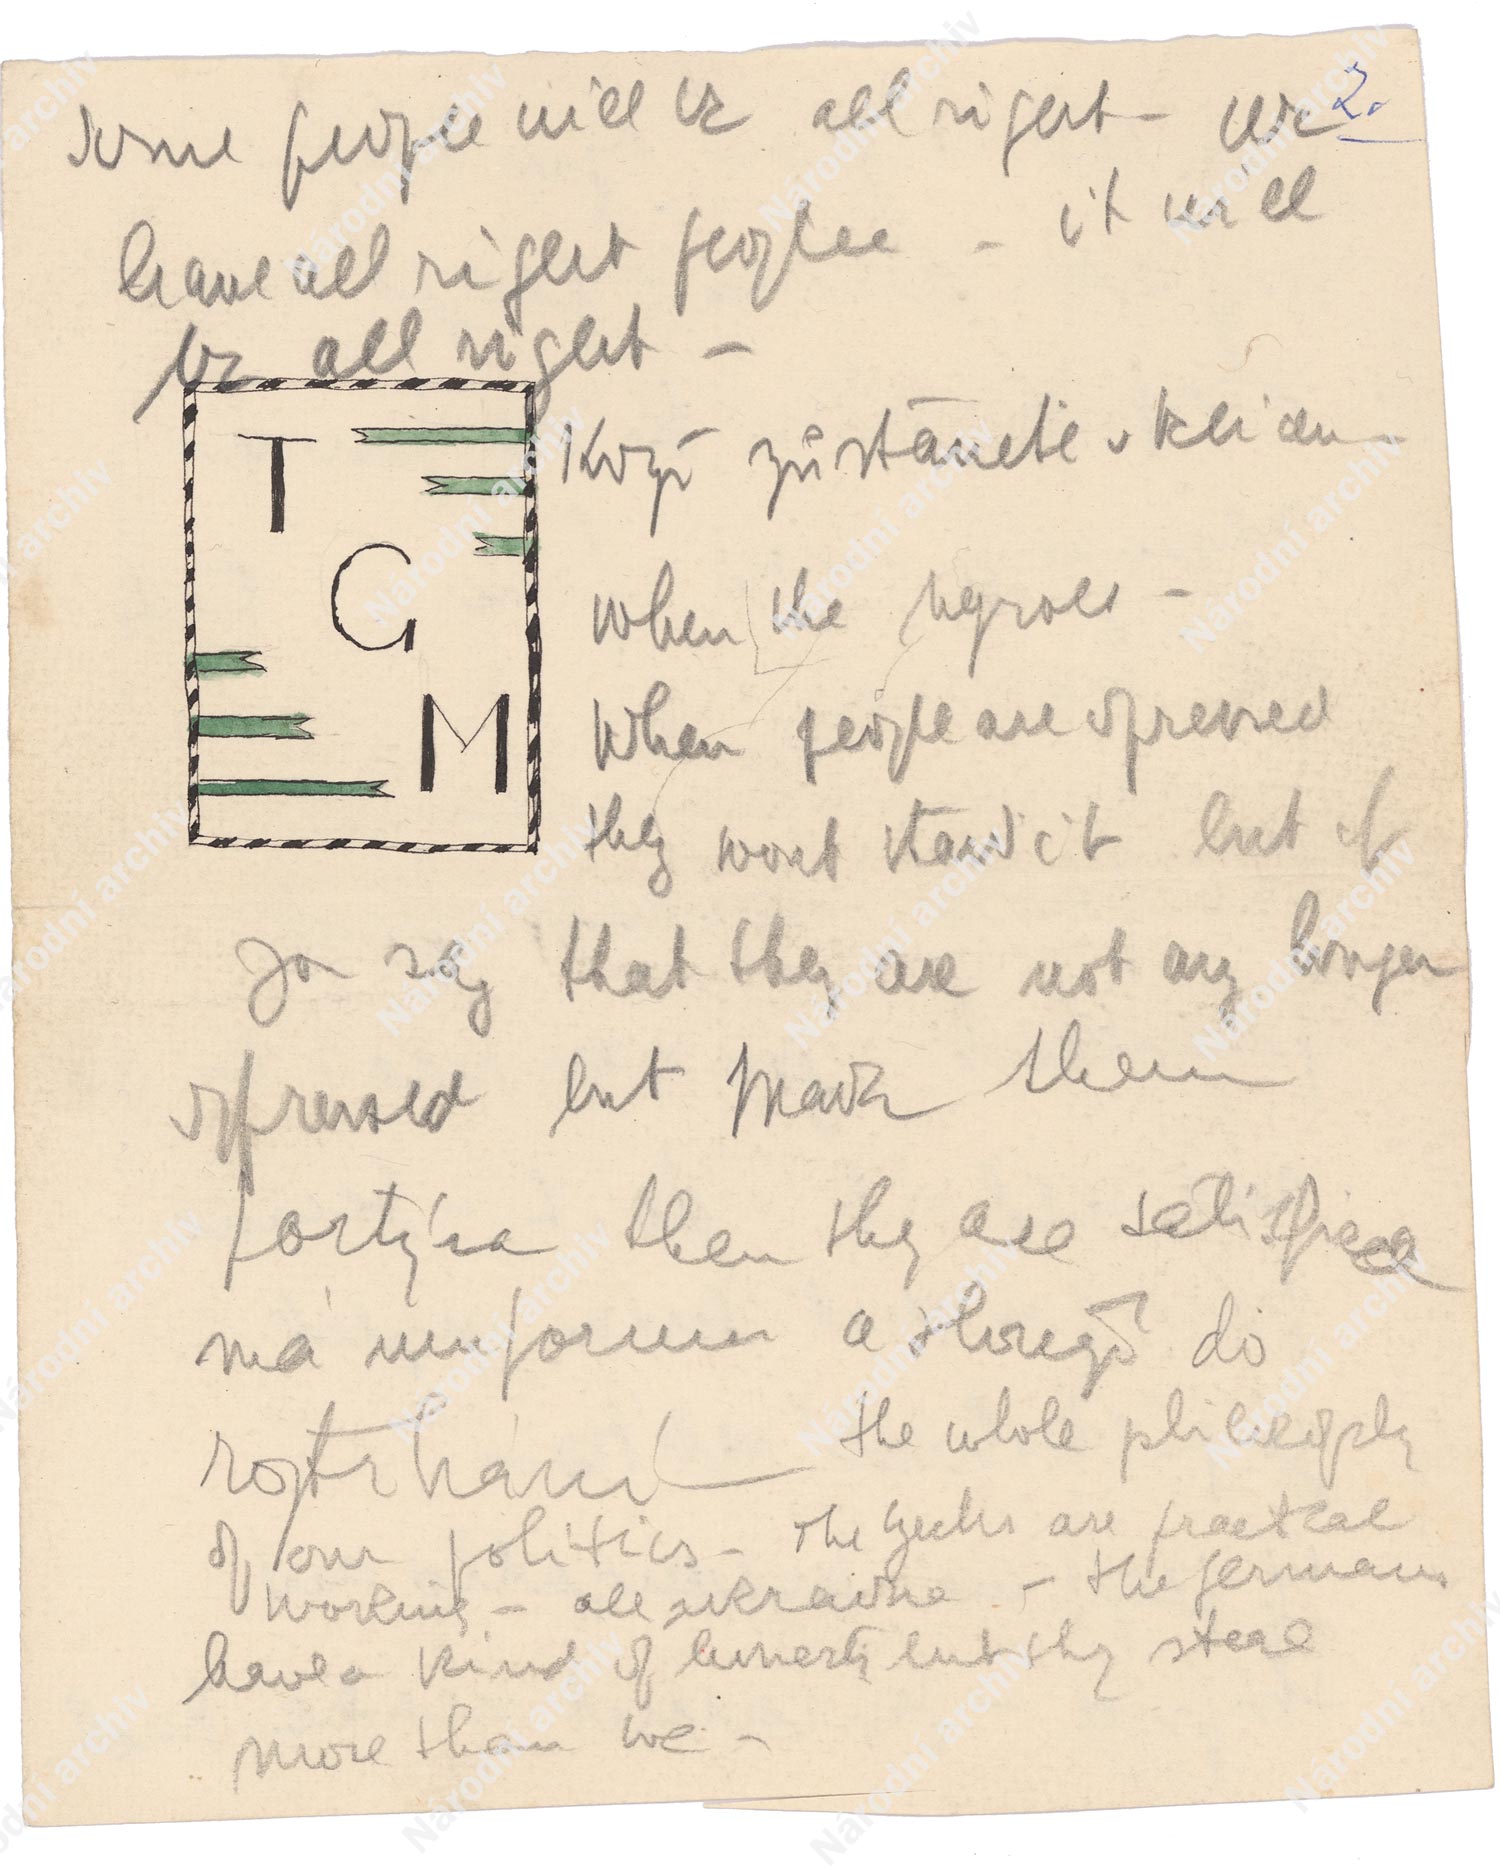 2.
some people will be all right - we
have all right people - it will
be all right -
T
G
M
Kozí zůstanete v klidu
when the negroes -
When people are opressed
they wont stand it but if
you say that they are not any longer
opressed but make them
portýra then they are satisfied
má uniformu a
the whole philosophy
of our politics - The Czechs are practical
working - all ukraine - the germans
have a kind of honesty but they steal
more than we -